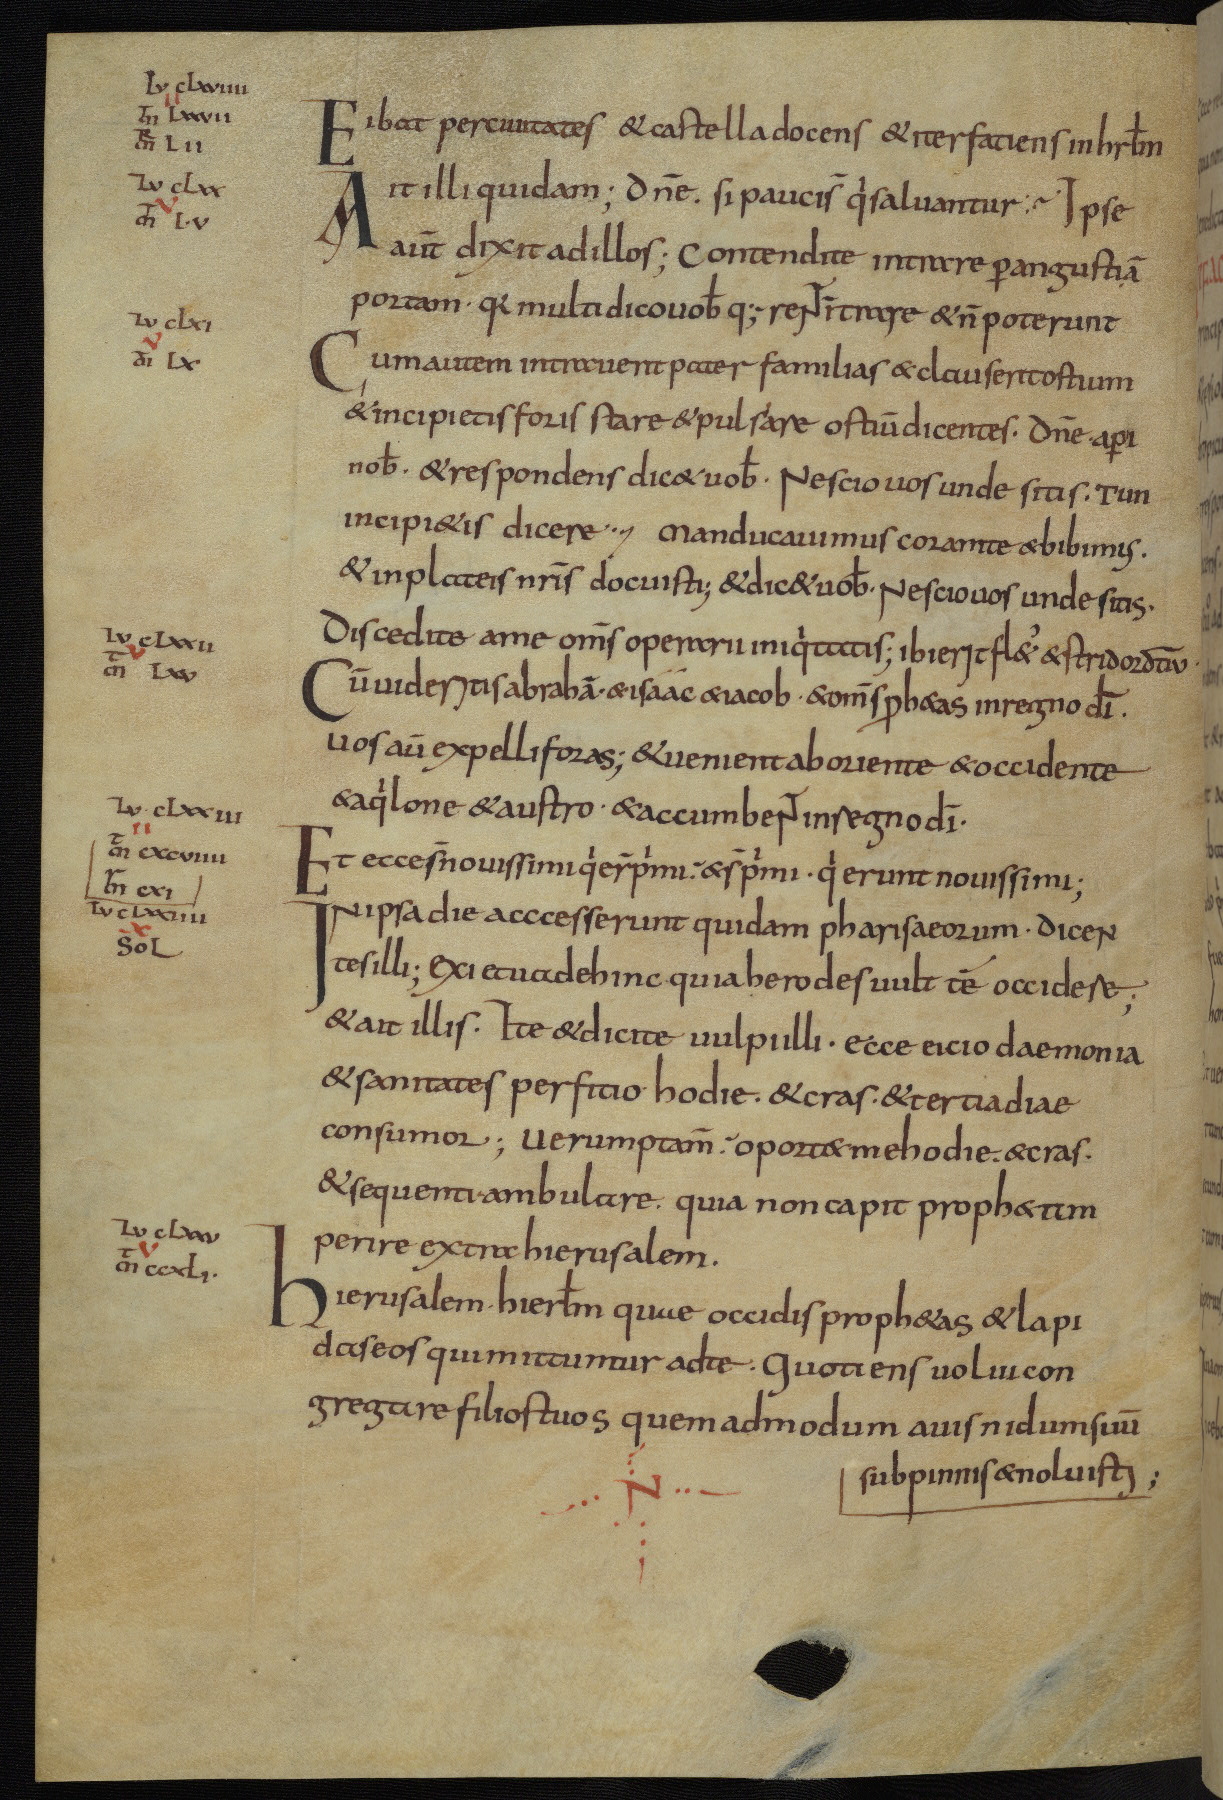 Lv clxviiii
ii
m̄ Lxxvii
m̄r Lii
Lv clxx
v
m̄ L·v
Lv clxi
v
m̄ Lx
Lv clxxii
v
m̄ Lxv
Lv clxxiii
ii
m̄ cxcviiii
m̄r cxi
Lv clxxiiii
x
SoL
Lv clxxv
v
m̄ ccxLi·
Eibat percivitates & castella docens & iter fatiens in hrl̄m
Ait illi quidam; Dn̄e. si pauci s̄ qͥ salvantur. Ipse
aut̄ dixit ad illos; Contendite intrare ꝑ angustiā
portam· qꝛ multi dico vob̄ q;rent intrare & n̄ poterunt
Cum autem intraverit pater familias & clauserit ostium
& incipietis foris stare & pulsare ostiū dicentes· Dn̄e· aꝑi
nob̄· & respondens dic& vob̄· Nescio vos unde sitis. Tun
incipi&is dicere·, Manducavimus coram te & bibimus.
& in plateis nr̄is docuisti; & dic& vob̄· Nescio vos unde sitis·
Discedite a me om̄s operarii iniqͥtatis; ibi erit fl&ꝰ & stridor dtiū·
Cū videritis abrahā· & isaac & iacob· & om̄s ꝓph&as in regno dī.
Vos aū expelli foras; & venient ab oriente & occidente
& aqͥlone & austro· & accumbent in regno dī·
Et ecce s̄ novissimi qͥ er̄ pͥmi: & s̄ pͥmi· qͥ erunt novissimi;
In ipsa die acccesserunt quidam pharisaeorum· dicen
tes illi; Exi et vade hinc quia herodes vult tē occidere;
& ait illis· Ite & dicite vulpi illi· ecce eicio daemonia
& sanitates perfitio hodie· & cras· & tertia diae
consumor; Verumptam̄: oport& me hodie· & cras·
& sequenti· ambulare· quia non capit proph&am
perire extra hierusalem.
hierusalem· hierl̄m quae occidis proph&as & lapi
das eos qui mittuntur ad te· Quotiens volui con
gregare filios tuos quemadmodum avis nidum suū
sub pinnis & noluisti;
N